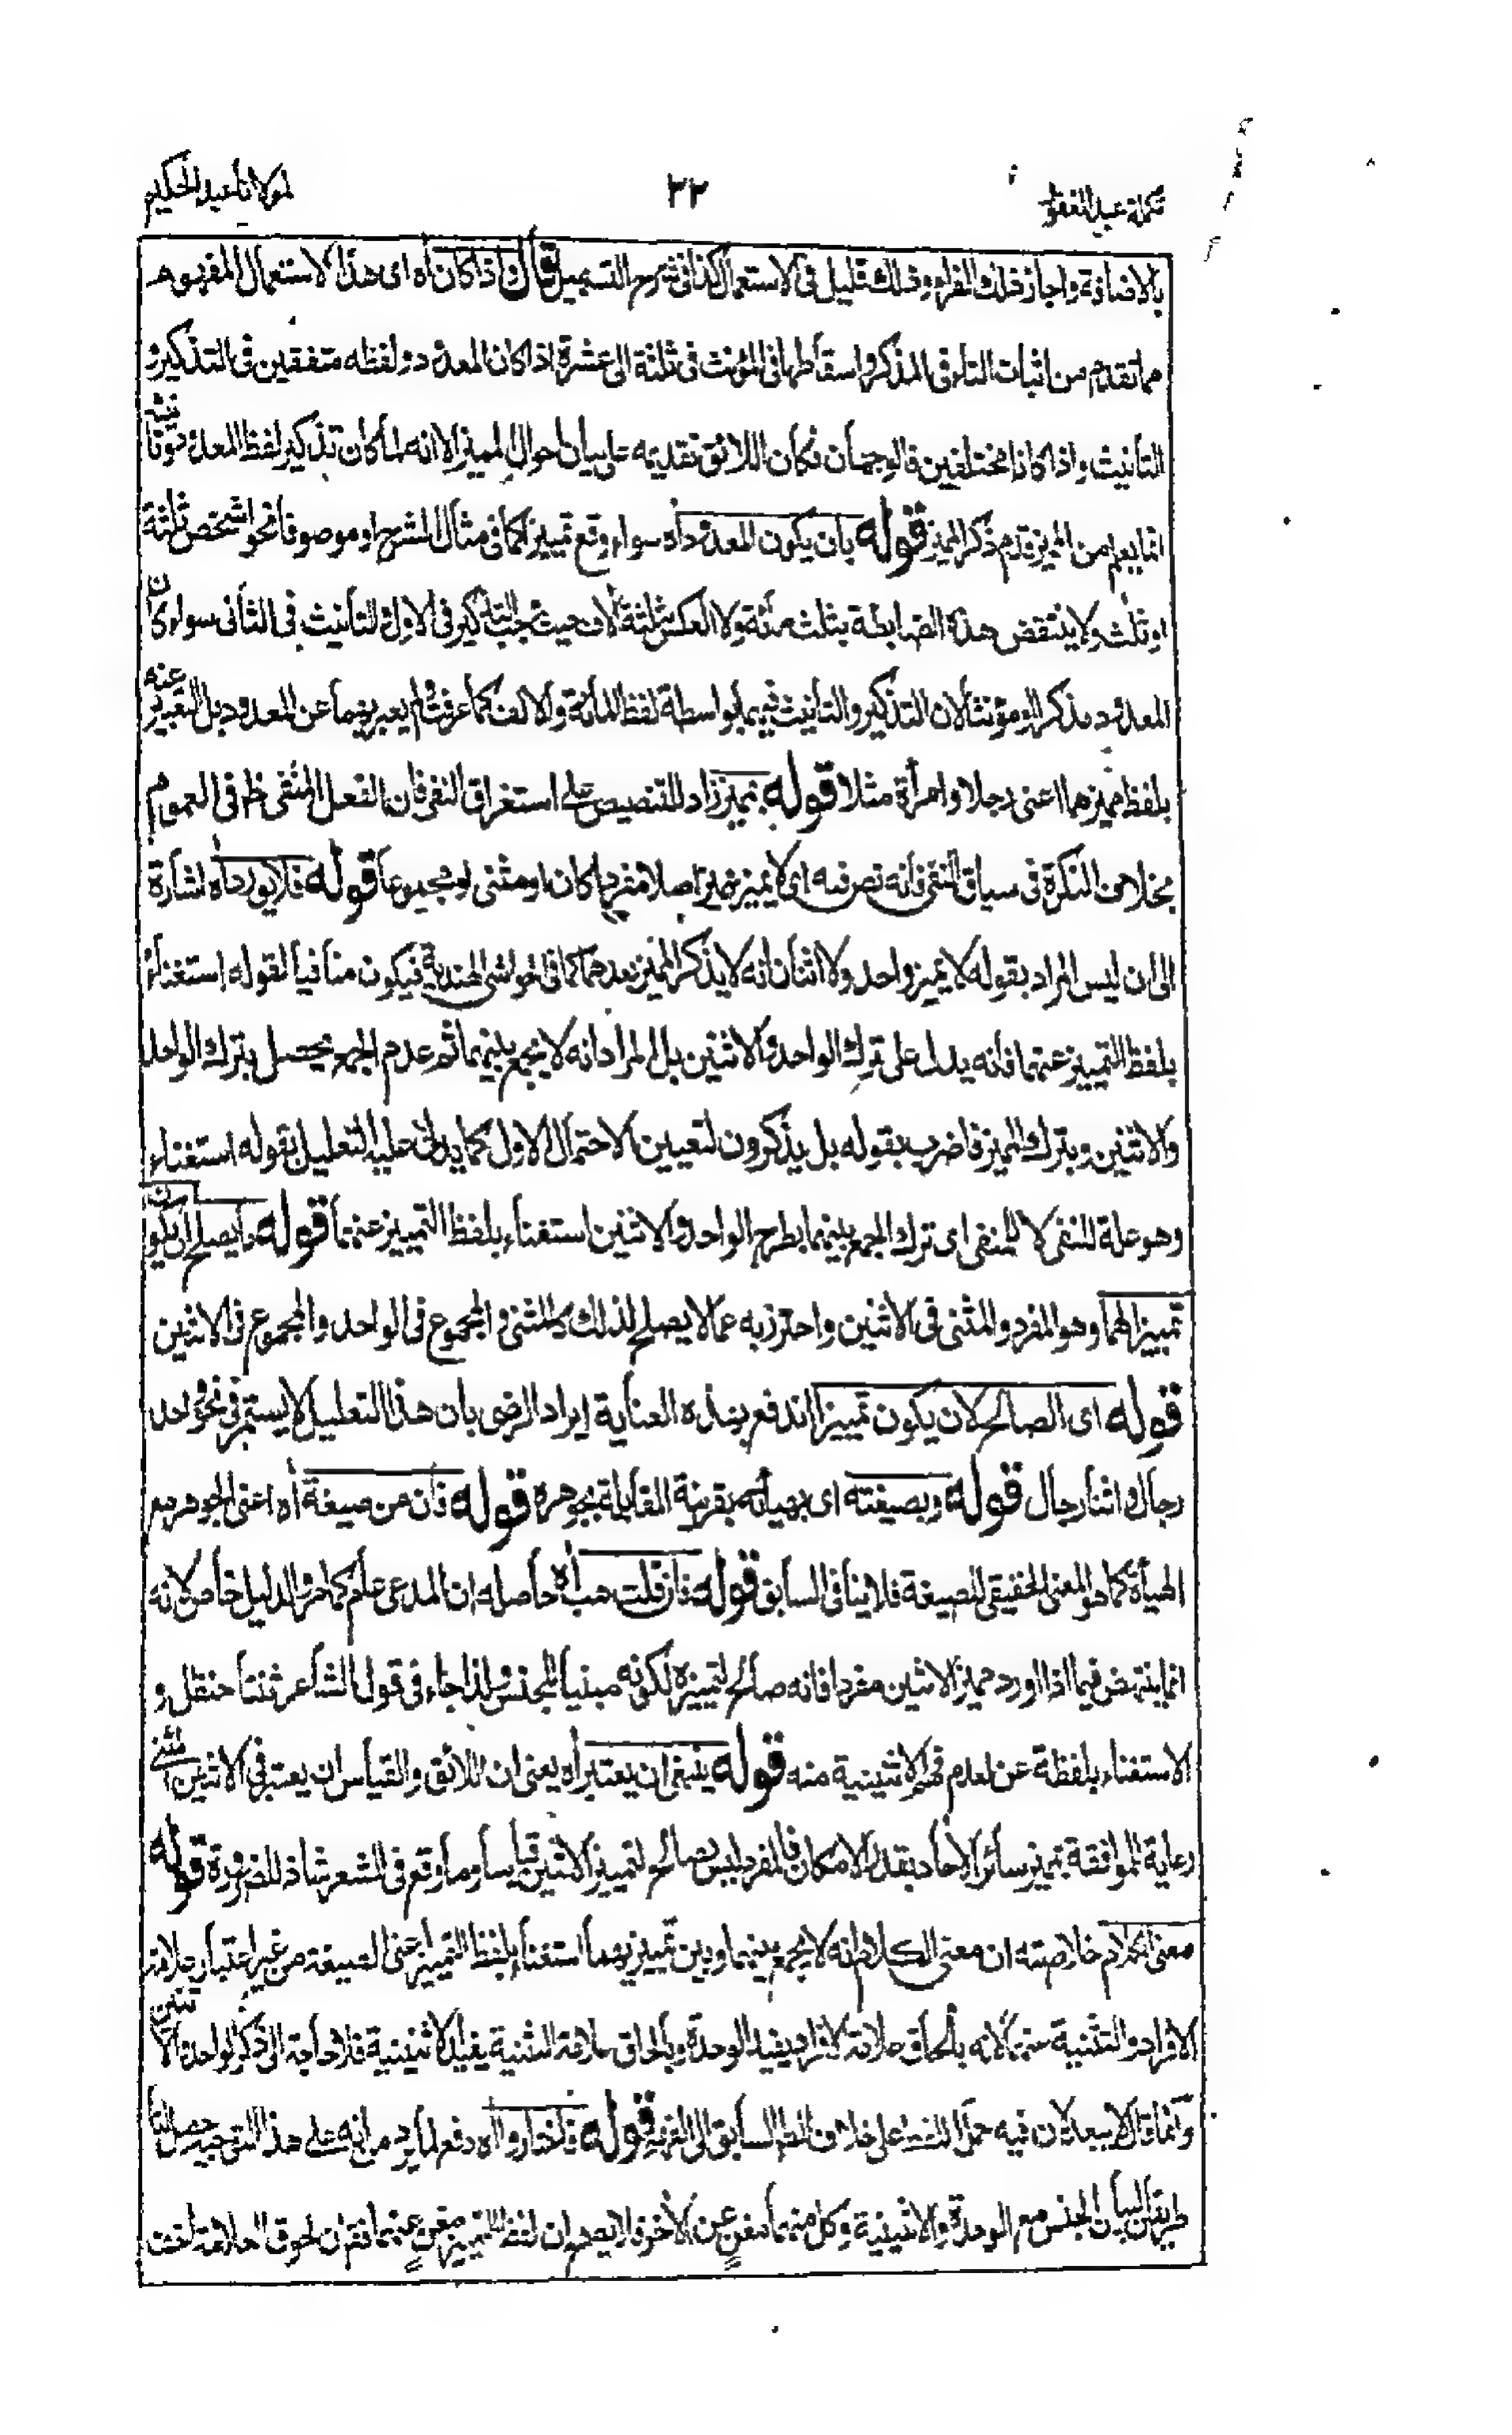 تكملة عبد الغفور ٣٢ لمولانا عبد الحكيم
بالاضافة واجاز ذلك الفراء وذلك قليل فى الاستعمال كذا فى شرح التسهيل قال واذا كان اه اى هذا الاستعمال المفهوم
مما تقدم من اثبات التاء فى المذكر واسقاطها فى المؤنث فى ثلثة الى عشرة اذا كان المعدود ولفظه متفقين فى التذكير و
التأنيث واذا كانا مختلفين فالوجهان فكان اللائق تقديمه على بيان احوال المميز الا انه لما كان تذكير لفظ المعدود وتانيثه
انما يعلم من المميز قدم ذكر المميز قوله بان يكون المعدود اه سواء وقع تمييزا كما فى مثال الشرح او موصوفا نحو اشخص ثلثة
او ثلث ولا ينتقض هذه الضابطة بثلث مئة ولا العكس بثلثة الاف حيث يجب التذكير فى الاول والتأنيث فى الثانى سواء كان
المعدود مذكرا او مؤنثا لان التذكير والتأنيث فيهما بواسطة لفظ المائة والالف كما عرفت ثم لم يعبر بهما عن المعدود بل التعبير عنه
بلفظ مميزهما اعنى رجلا وامرأة مثلا قوله بمميز زاد للتنصيص على استغراق النفى فان الفعل المنفى ظ فى العموم
بخلاف النكرة فى سياق النفى فانه نص فيه اى لا يميز بمميز اصلا مفردا كان او مثنى او مجموعا قوله فلا يورد اه اشارة
الى ان ليس المراد بقوله لا يميز واحد ولا اثنان انه لا يذكر المميز بعدهما كما فى الحواشى الهندية فيكون منافيا لقوله استغناء
بلفظ التمييز عنهما فانه يدل على ترك الواحد والاثنين بل المراد انه لا يجمع بينهما ثم عدم الجمع يحصل بترك الواحد
والاثنين وبترك المميز فاضرب بقوله بل يذكرون لتعيين الاحتمال الاول كما يدل عليه التعليل بقوله استغناء
وهو علة للنفى لا للمنفى اى ترك الجمع بينهما بطرح الواحد والاثنين استغناء بلفظ التمييز عنهما قوله ما يصلح ان يكون
تمييزا لهما وهو المفرد والمثنى فى الاثنين واحترز به عما لا يصلح لذلك كالمثنى والمجموع فى الواحد والمجموع فى الاثنين
قوله اى الصالح لان يكون تمييزا اندفع بهذه العناية ايراد الرضى بان هذا التعليل لا يستمر فى نحو واحد
رجال واثنا رجال قوله وبصيغته اى بهيأته بقرينة المقابلة بجوهره قوله فان من صيغة اه اعنى الجوهر مع
الهيأة كما هو المعنى الحقيقى للصيغة فلا ينافى السابق قوله فان قلت هب اه حاصله ان المدعى عام كما مر والدليل خاص لانه
انما ينتهض فيما اذا اورد مميز الاثنين مفردا فانه صالح لتمييزه لكونه مبنيا للجنس ولذا جاء فى قول الشاعر ثنتا حنظل و
الاستغناء بلفظة عن لعدم فهم الاثنينية منه قوله ينبغى ان يعتبر اه يعنى ان اللائق والقياس ان يعتبر فى الاثنين المثنى
رعاية للموافقة بمميز سائر الاحاد بقدر الامكان فالمفرد ليس بصالح لتمييز الاثنين قياسا وما وقع فى الشعر شاذ للضرورة قوله
معنى الكلام خلاصته ان معنى الكلام انه لا يجمع بينهما وبين تمييزيهما استغناء بلفظ التمييز اعنى الصيغة من غير اعتبار علامة
الافراد والتثنية عنهما لانه بالحاق علامة الافراد يفيد الوحدة وبالحاق علامة التثنية يفيد الاثنينية فلا حاجة الى ذكر الواحد والاثنين
وانما قال لا يبعد لان فيه حمل اللفظ على خلاف السابق الى الفهم قوله فاختاروا اه دفع لما يرد من انه على هذا التوجيه حصل لنا
طريقان لبيان الجنس مع الوحدة والاثنينية وكل منهما مغن عن الاخر فلا يصح ان لفظ التمييز مغن عنهما فتم ان لحوق العلامة اخف